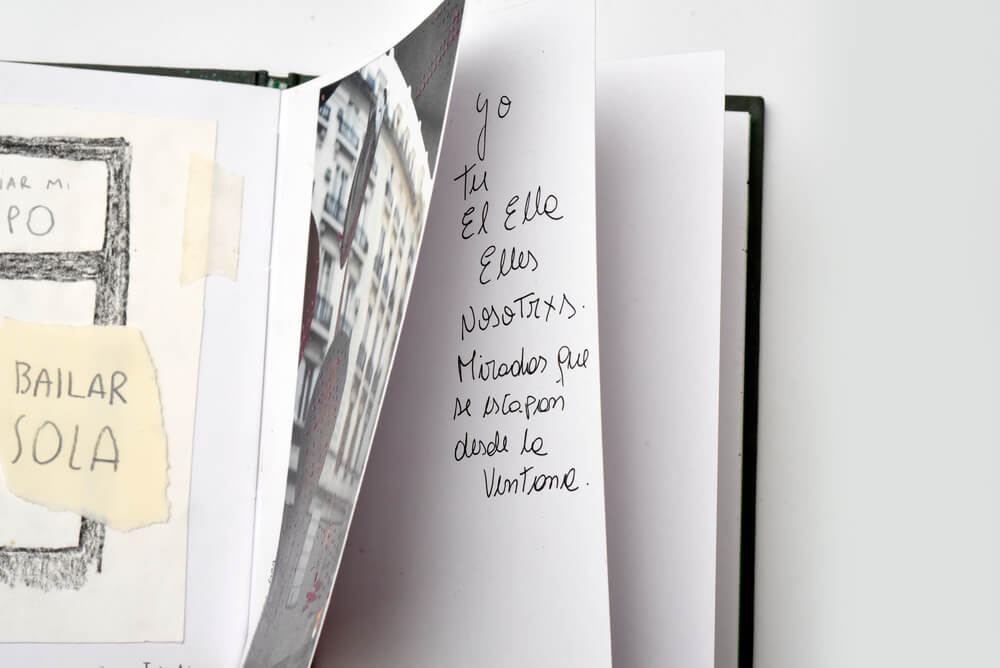 AR MI
PO
BAILAR
SOLA
yo
Tu
El Ella
Elles
Nosotrxs.
Miradas que
se escapan
desde la
Ventana.